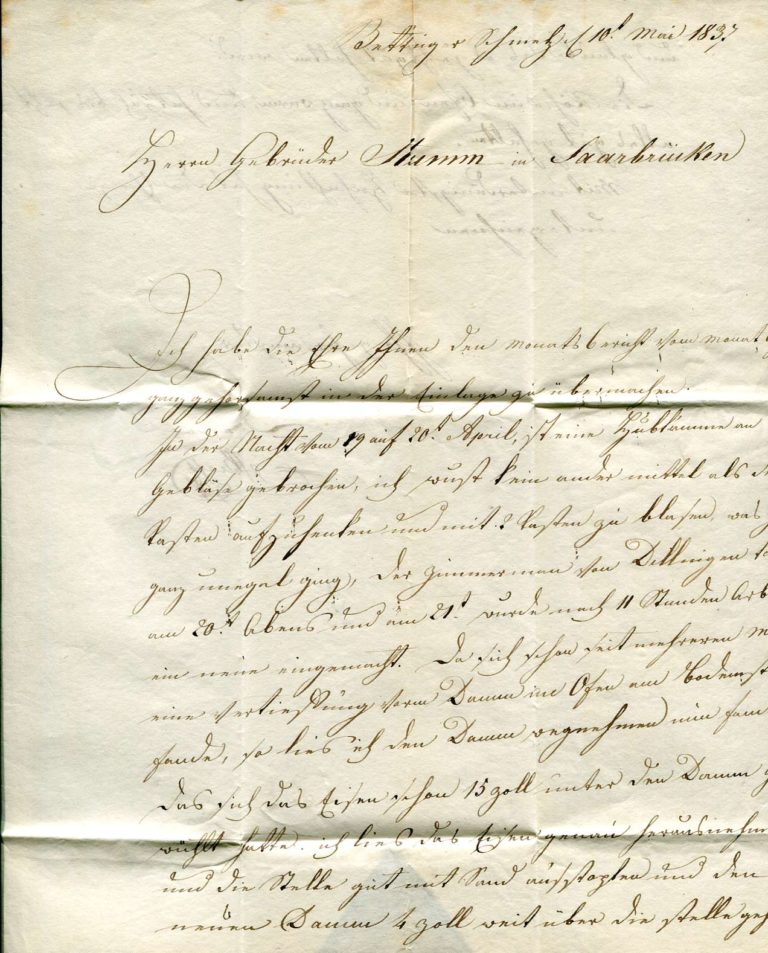 Bettinger Schmelz d 10t Mai 1837
Herrn Gebrüder Stumm in Saarbrücken
Ich habe die Ehre Ihnen den Monatsbericht vom Monat
ganz gehorsamst in der Einlage zu übermachen.
In der Nacht vom 19 auf 20t April, ist eine Hubkamme an
Gebläse gebrochen, ich wust kein ander mittel als
Kasten aufzuhenken und mit 2 Kasten zu blasen, was
ganz unegal ging, der Zimmerman von Dillingen
am 20t Abens und am 21t wurde nach 11 Stunden Arb
ein neue eingemacht. Da sich schon seit mehreren
eine vertieffung vorm Damm im Ofen am Bodenst
fande, so lies ich den Damm wegnehmen nun fan
das sich das Eisen schon 15 zoll unter den Damm
wühlt hatte. ich lies das Eisen genau herausnehm
und die Stelle gut mit Sand ausstopfen und den
neuen Damm 4 zoll weit über die stelle